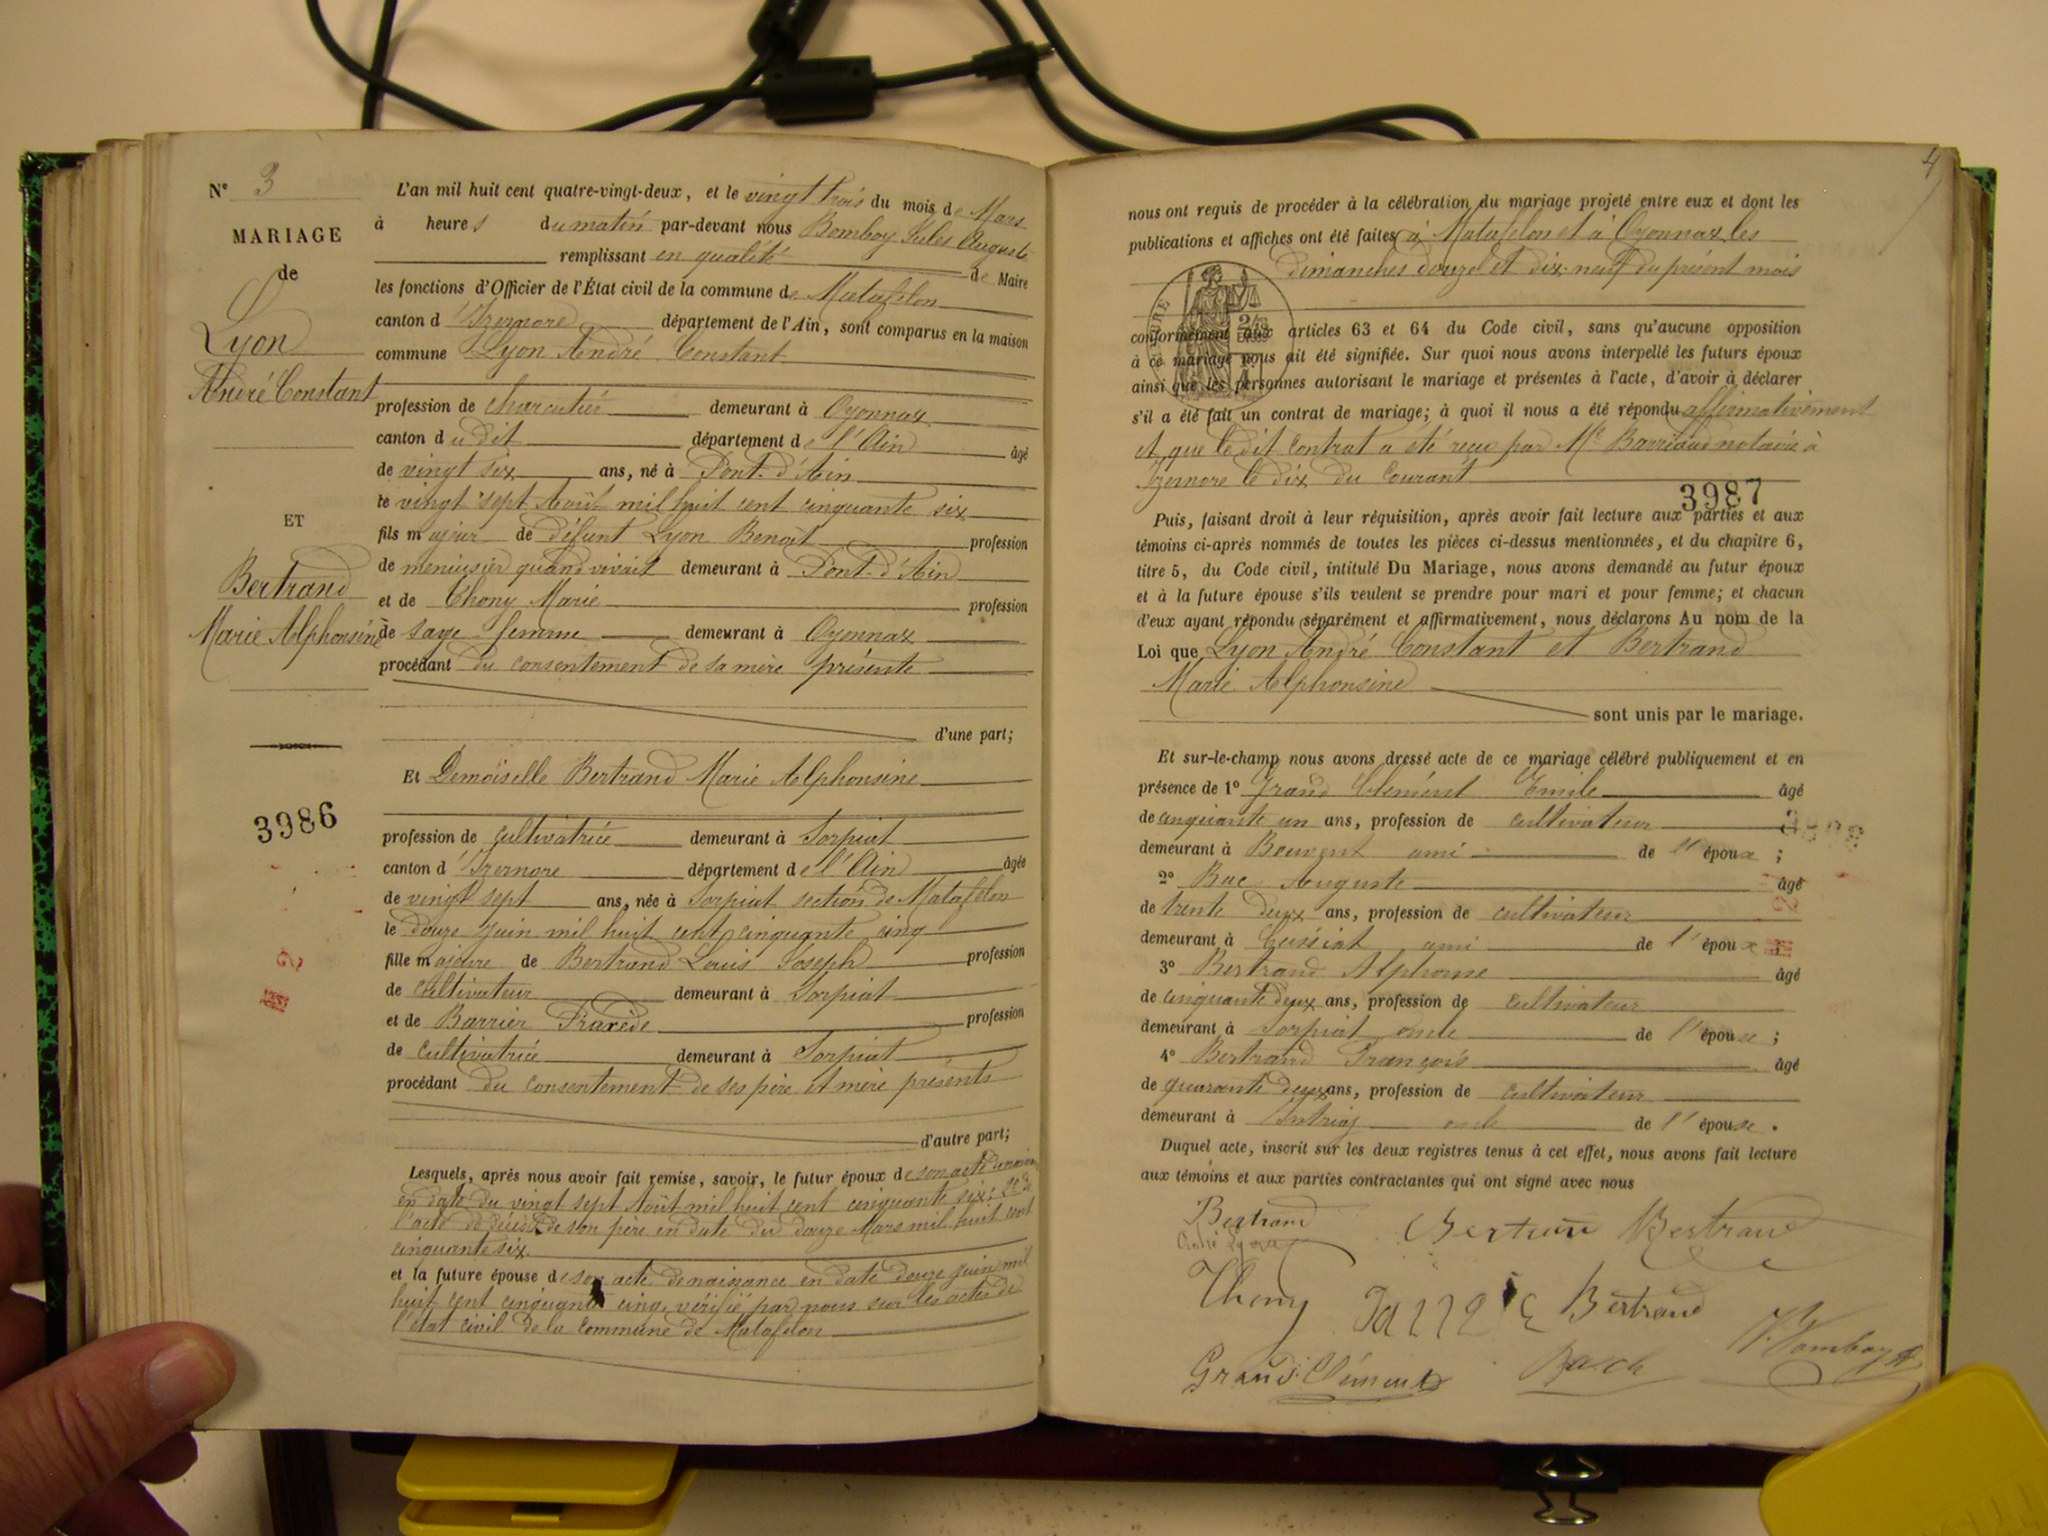 N° 3
MARIAGE
de
Lyon
André Constant
ET
Bertrand
Marie Alphonsine
3986
L'an mil huit cent quatre-vingt-deux, et le vingt trois du mois de Mars
à heures du matin par-devant nous Bomboy Jules Auguste
remplissant en qualité de Maire
les fonctions d'Officier de l'État civil de la commune de Matafelon
canton d'Izernore département de l'Ain, sont comparus en la maison
commune Lyon André Constant
profession de charcutier demeurant à Oyonnax
canton du dit département de l'Ain âgé
de vingt six ans, né à Pont-d'Ain
le vingt sept Août mil huit cent cinquante six
fils majeur de défunt Lyon Benoit profession
de menuisier quand vivait demeurant à Pont-d'Ain
et de Thony Marie profession
de sage femme demeurant à Oyonnax
procédant du consentement de sa mère présente
d'une part;
Et Demoiselle Bertrand Marie Alphonsine
profession de cultivatrice demeurant à Sorpiat
canton d'Izernore département de l'Ain âgée
de vingt sept ans, née à Sorpiat section de Matafelon
le douze juin mil huit cent cinquante cinq
fille majeure de Bertrand Louis Joseph profession
de cultivateur demeurant à Sorpiat
et de Barrier Praxède profession
de cultivatrice demeurant à Sorpiat
procédant du consentement de ses père et mère présents
d'autre part;
Lesquels, après nous avoir fait remise, savoir, le futur époux de son acte
en date du vingt sept Août mil huit cent cinquante six;
l'acte de décès de son père en date du douze Mars mil huit cent
cinquante six
et la future épouse de son acte de naissance en date douze juin mil
huit cent cinquante cinq, vérifié par nous sur les actes de
l'état civil de la commune de Matafelon
4
nous ont requis de procéder à la célébration du mariage projeté entre eux et dont les
publications et affiches ont été faites à Matafelon et à Oyonnax les
dimanches douze et dix-neuf du présent mois
conformément aux articles 63 et 64 du Code civil, sans qu'aucune opposition
à ce mariage nous ait été signifiée. Sur quoi nous avons interpellé les futurs époux
ainsi que les personnes autorisant le mariage et présentes à l'acte, d'avoir à déclarer
s'il a été fait un contrat de mariage; à quoi il nous a été répondu affirmativement
et que le dit contrat a été reçu par Me Barréaud notaire à
Izernore le dix du courant
3987
Puis, faisant droit à leur réquisition, après avoir fait lecture aux parties et aux
témoins ci-après nommés de toutes les pièces ci-dessus mentionnées, et du chapitre 6,
titre 5, du Code civil, intitulé Du Mariage, nous avons demandé au futur époux
et à la future épouse s'ils veulent se prendre pour mari et pour femme; et chacun
d'eux ayant répondu séparément et affirmativement, nous déclarons Au nom de la
Loi que Lyon André Constant et Bertrand
Marie Alphonsine
sont unis par le mariage.
Et sur-le-champ nous avons dressé acte de ce mariage célébré publiquement et en
présence de 1° Grand Clément Emile âgé
de cinquante un ans, profession de cultivateur
demeurant à Bouvent ami de l'époux;
2° Auguste âgé
de trente deux ans, profession de cultivateur
demeurant à Cussiat ami de l'époux;
3° Bertrand Alphonse âgé
de cinquante deux ans, profession de cultivateur
demeurant à Sorpiat oncle de l'épouse;
4° Bertrand François âgé
de quarante deux ans, profession de cultivateur
demeurant à Intriaz oncle de l'épouse.
Duquel acte, inscrit sur les deux registres tenus à cet effet, nous avons fait lecture
aux témoins et aux parties contractantes qui ont signé avec nous
Bertrand Bertran Bertrand
André Lyon
Thony Bertrand
Grand Clément J. Bomboy